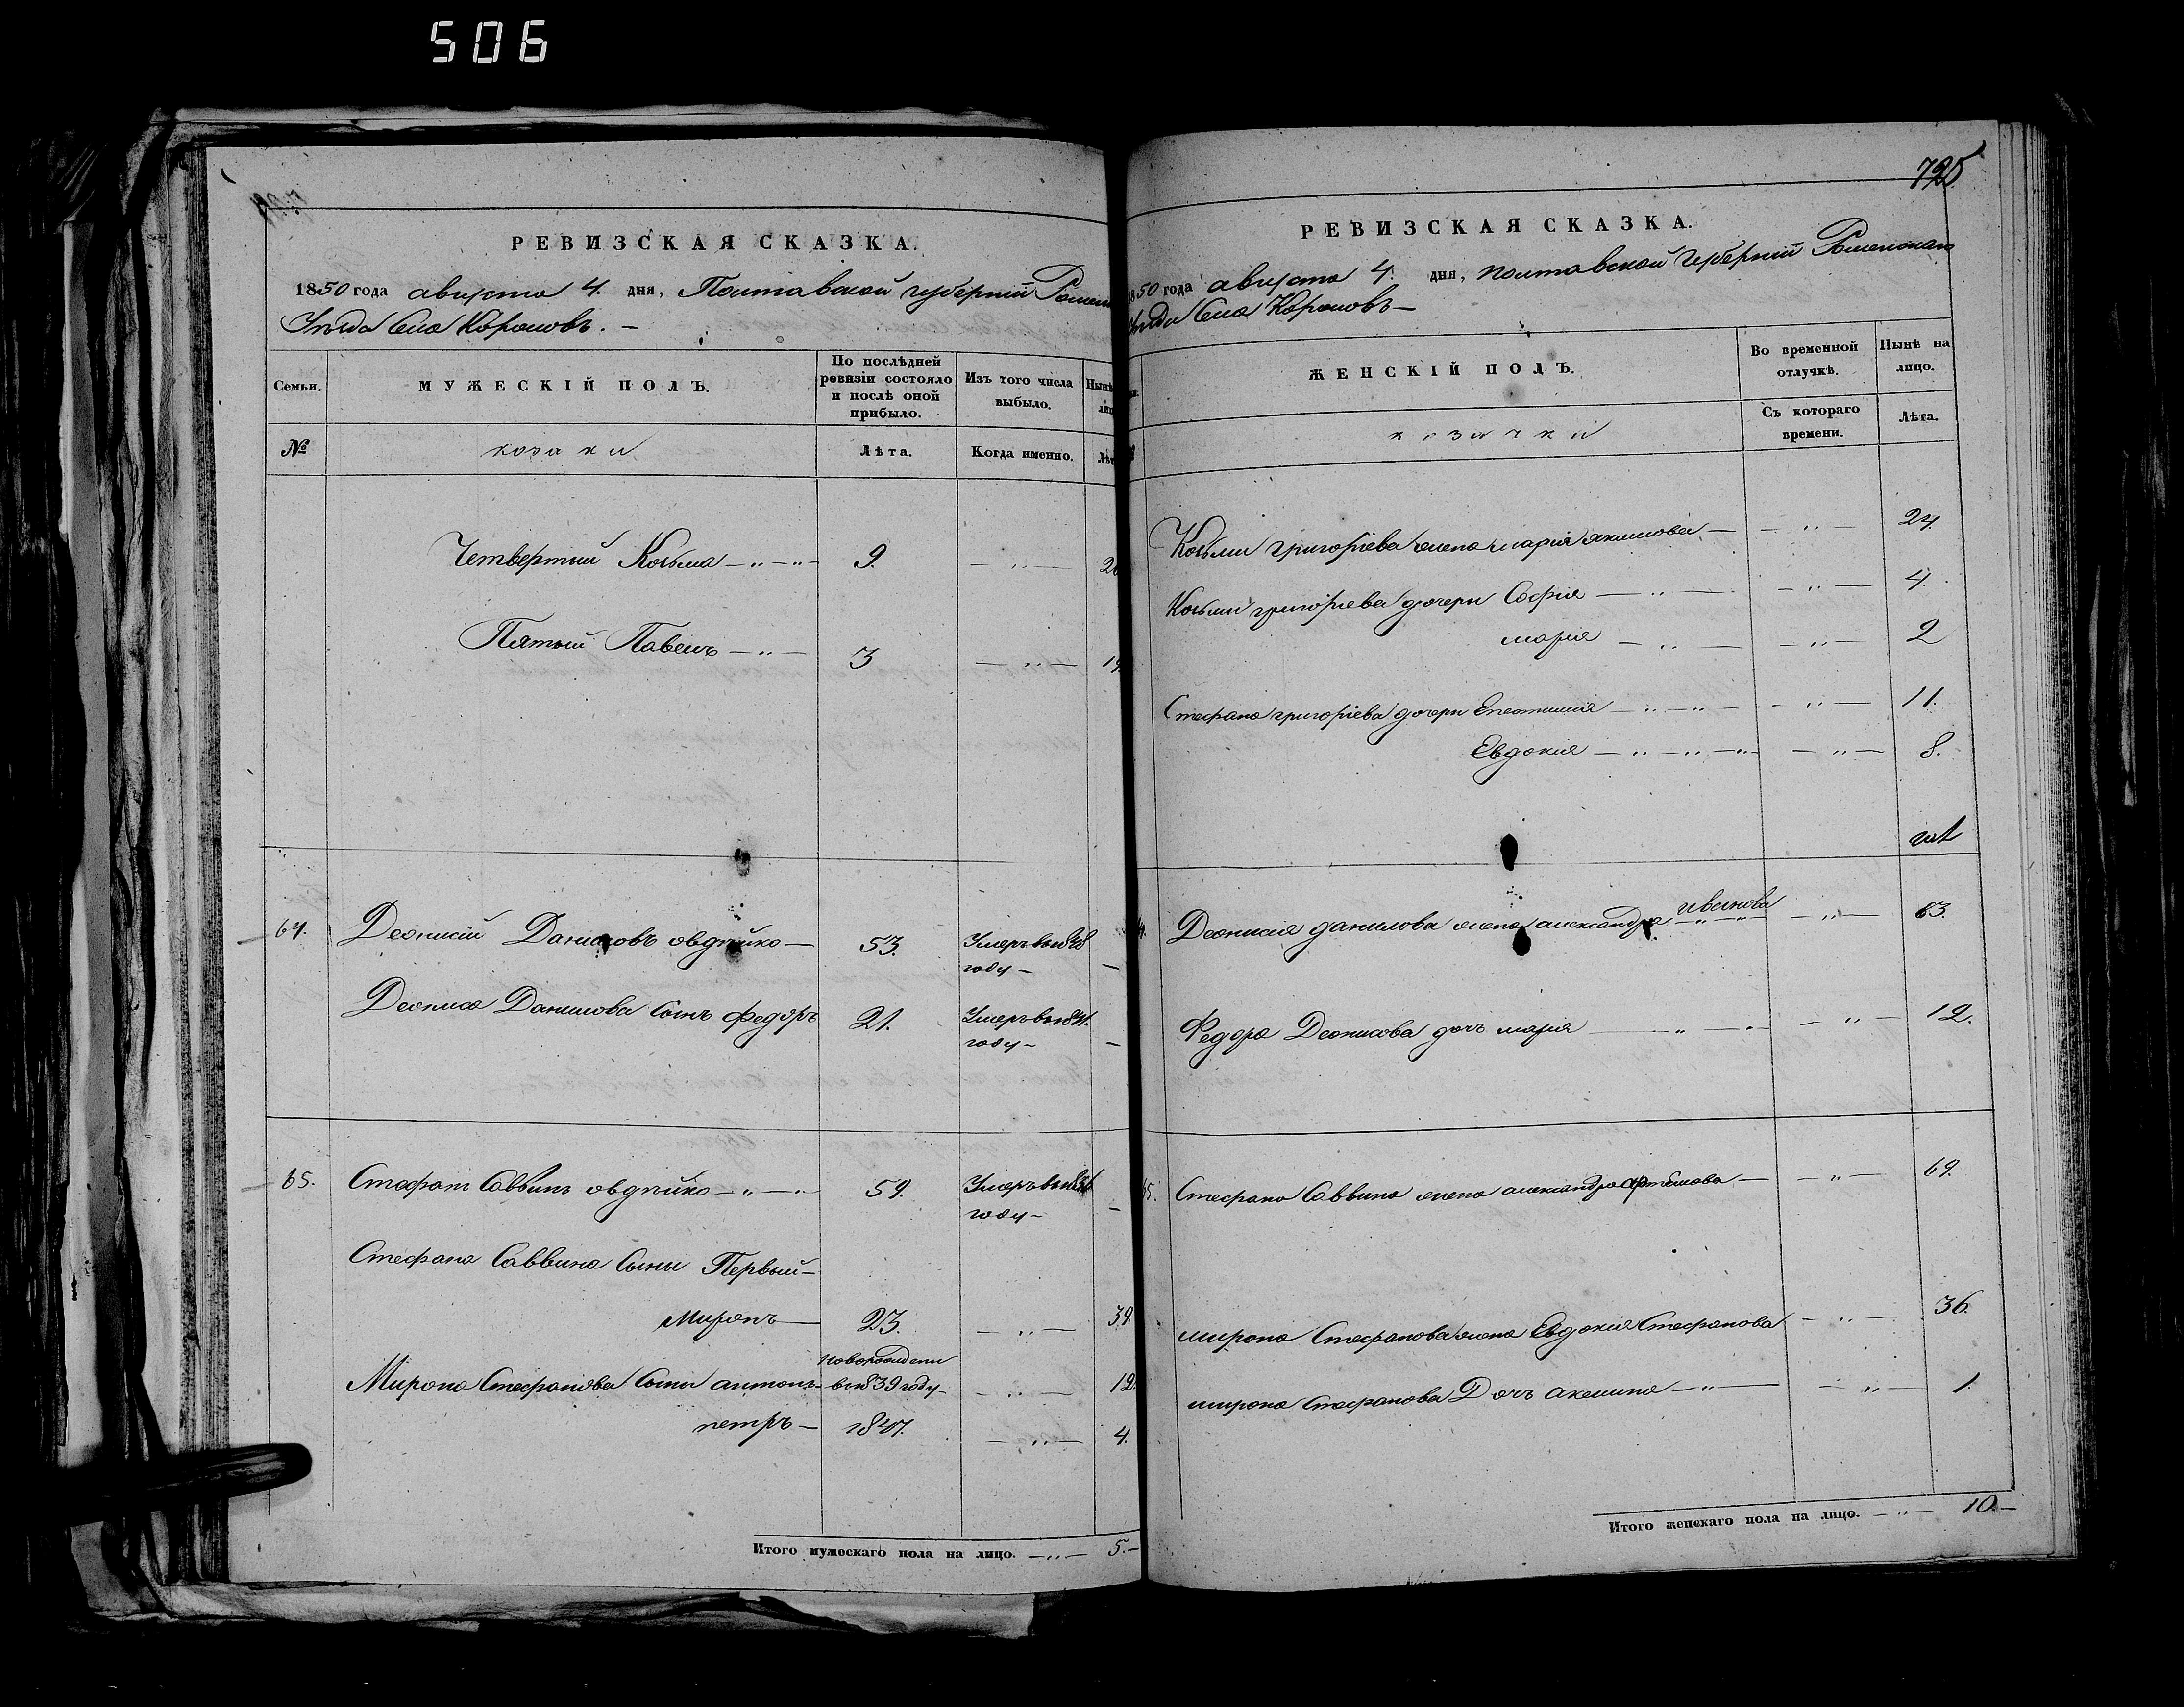 506
РЕВИЗСКАЯ СКАЗКА.
1850 года августа 4. дня, Полтавской губернiй Ромен
Уѣзда Села Коровов. —
Семьи.
МУЖЕСКІЙ ПОЛЪ.
По послѣдней ревизіи состояло и послѣ оной прибыло.
Изъ того числа выбыло.
Нынѣ
№
козаки
Лѣта.
Когда именно.
Лѣт
Четвертый Косьма — 9. — 26
Пятый Павелъ — 3 — 19
64. Деонисiй Даниловъ овдѣйко — 53. Умеръ в 1838 году — —
Деониса Данилова Сынъ Федоръ 21. Умеръ в 1841. году — —
65. Стефанъ Саввинъ овдѣйко — 59. Умеръ в году — —
Стефана Саввина Сыны Первый —
Миронъ — 23. — 39.
новорожденъ
Мирона Стефанова Сыны антонъ — в 1839 году — — 12.
петръ — 1847. — 4.
Итого мужескаго пола на лицо. — 5. —
725
РЕВИЗСКАЯ СКАЗКА.
1850 года августа 4. дня, полтавской губернiй Роменскаго
Уѣзда Села —
ЖЕНСКІЙ ПОЛЪ.
Во временной отлучкѣ.
Нынѣ на лицо.
козачки
Съ котораго времени.
Лѣта.
Косьми григорiева жена марiя якимова — — 24.
Косьми григорiева дочери Софiя — — 4.
марiя — — 2
Стефана григорiева дочери — — 11.
Евдокия — — 8.
64. Деонисия данилова жена александра иванова — 63.
Федора Деонисова дочь марiя — — 12.
65. Стефана Саввина жена александра артемова — — 69.
мирона Стефанова жена Евдокия Стефанова — 36.
мирона Стефанова Дочь акелина — — 1.
Итого женскаго пола на лицо. — 10. —